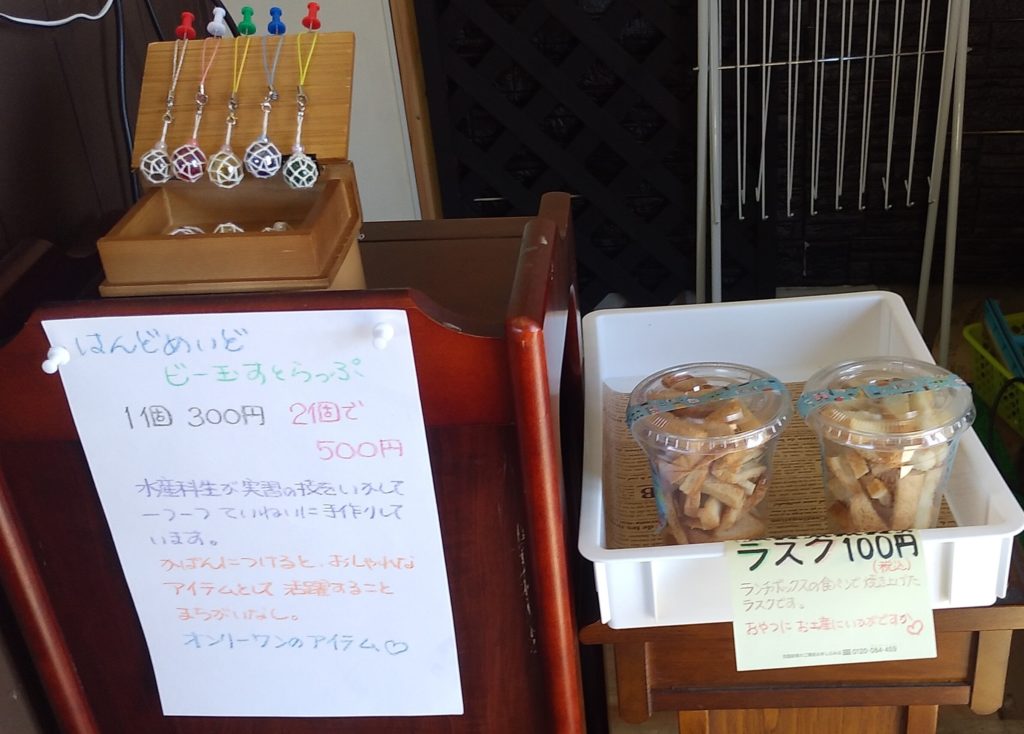 はんどめいど
ビー玉すとらっぷ
1個 300円 2個で
500円
水産科生が実習の技をいかして
一つ一つていねいに手作りして
います。
かばんにつけると、おしゃれな
アイテムとして活躍すること
まちがいなし。
オンリーワンのアイテム♡
ラスク100円
(税込)
ランチボックスの食パンで焼き上げた
ラスクです。
おやつに お土産にいかがですか♡
0120-084-459